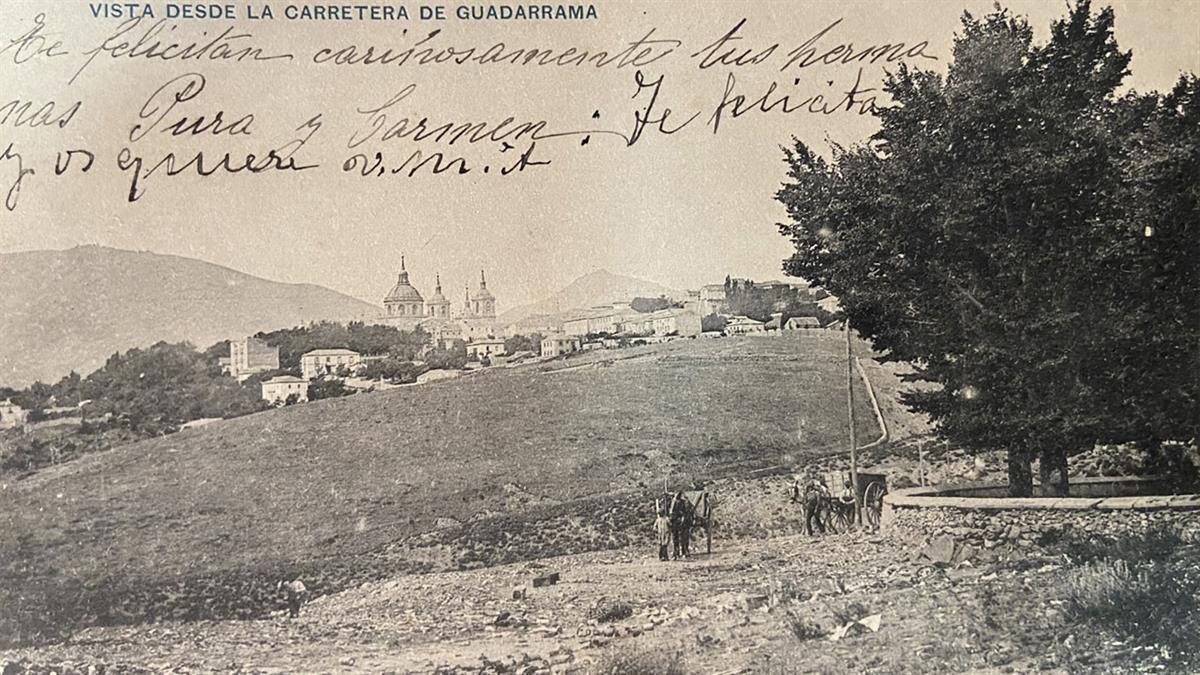 VISTA DESDE LA CARRETERA DE GUADARRAMA
Te felicitan cariñosamente tus herma
nas Pura y Carmen; Te felicita
y os quiere